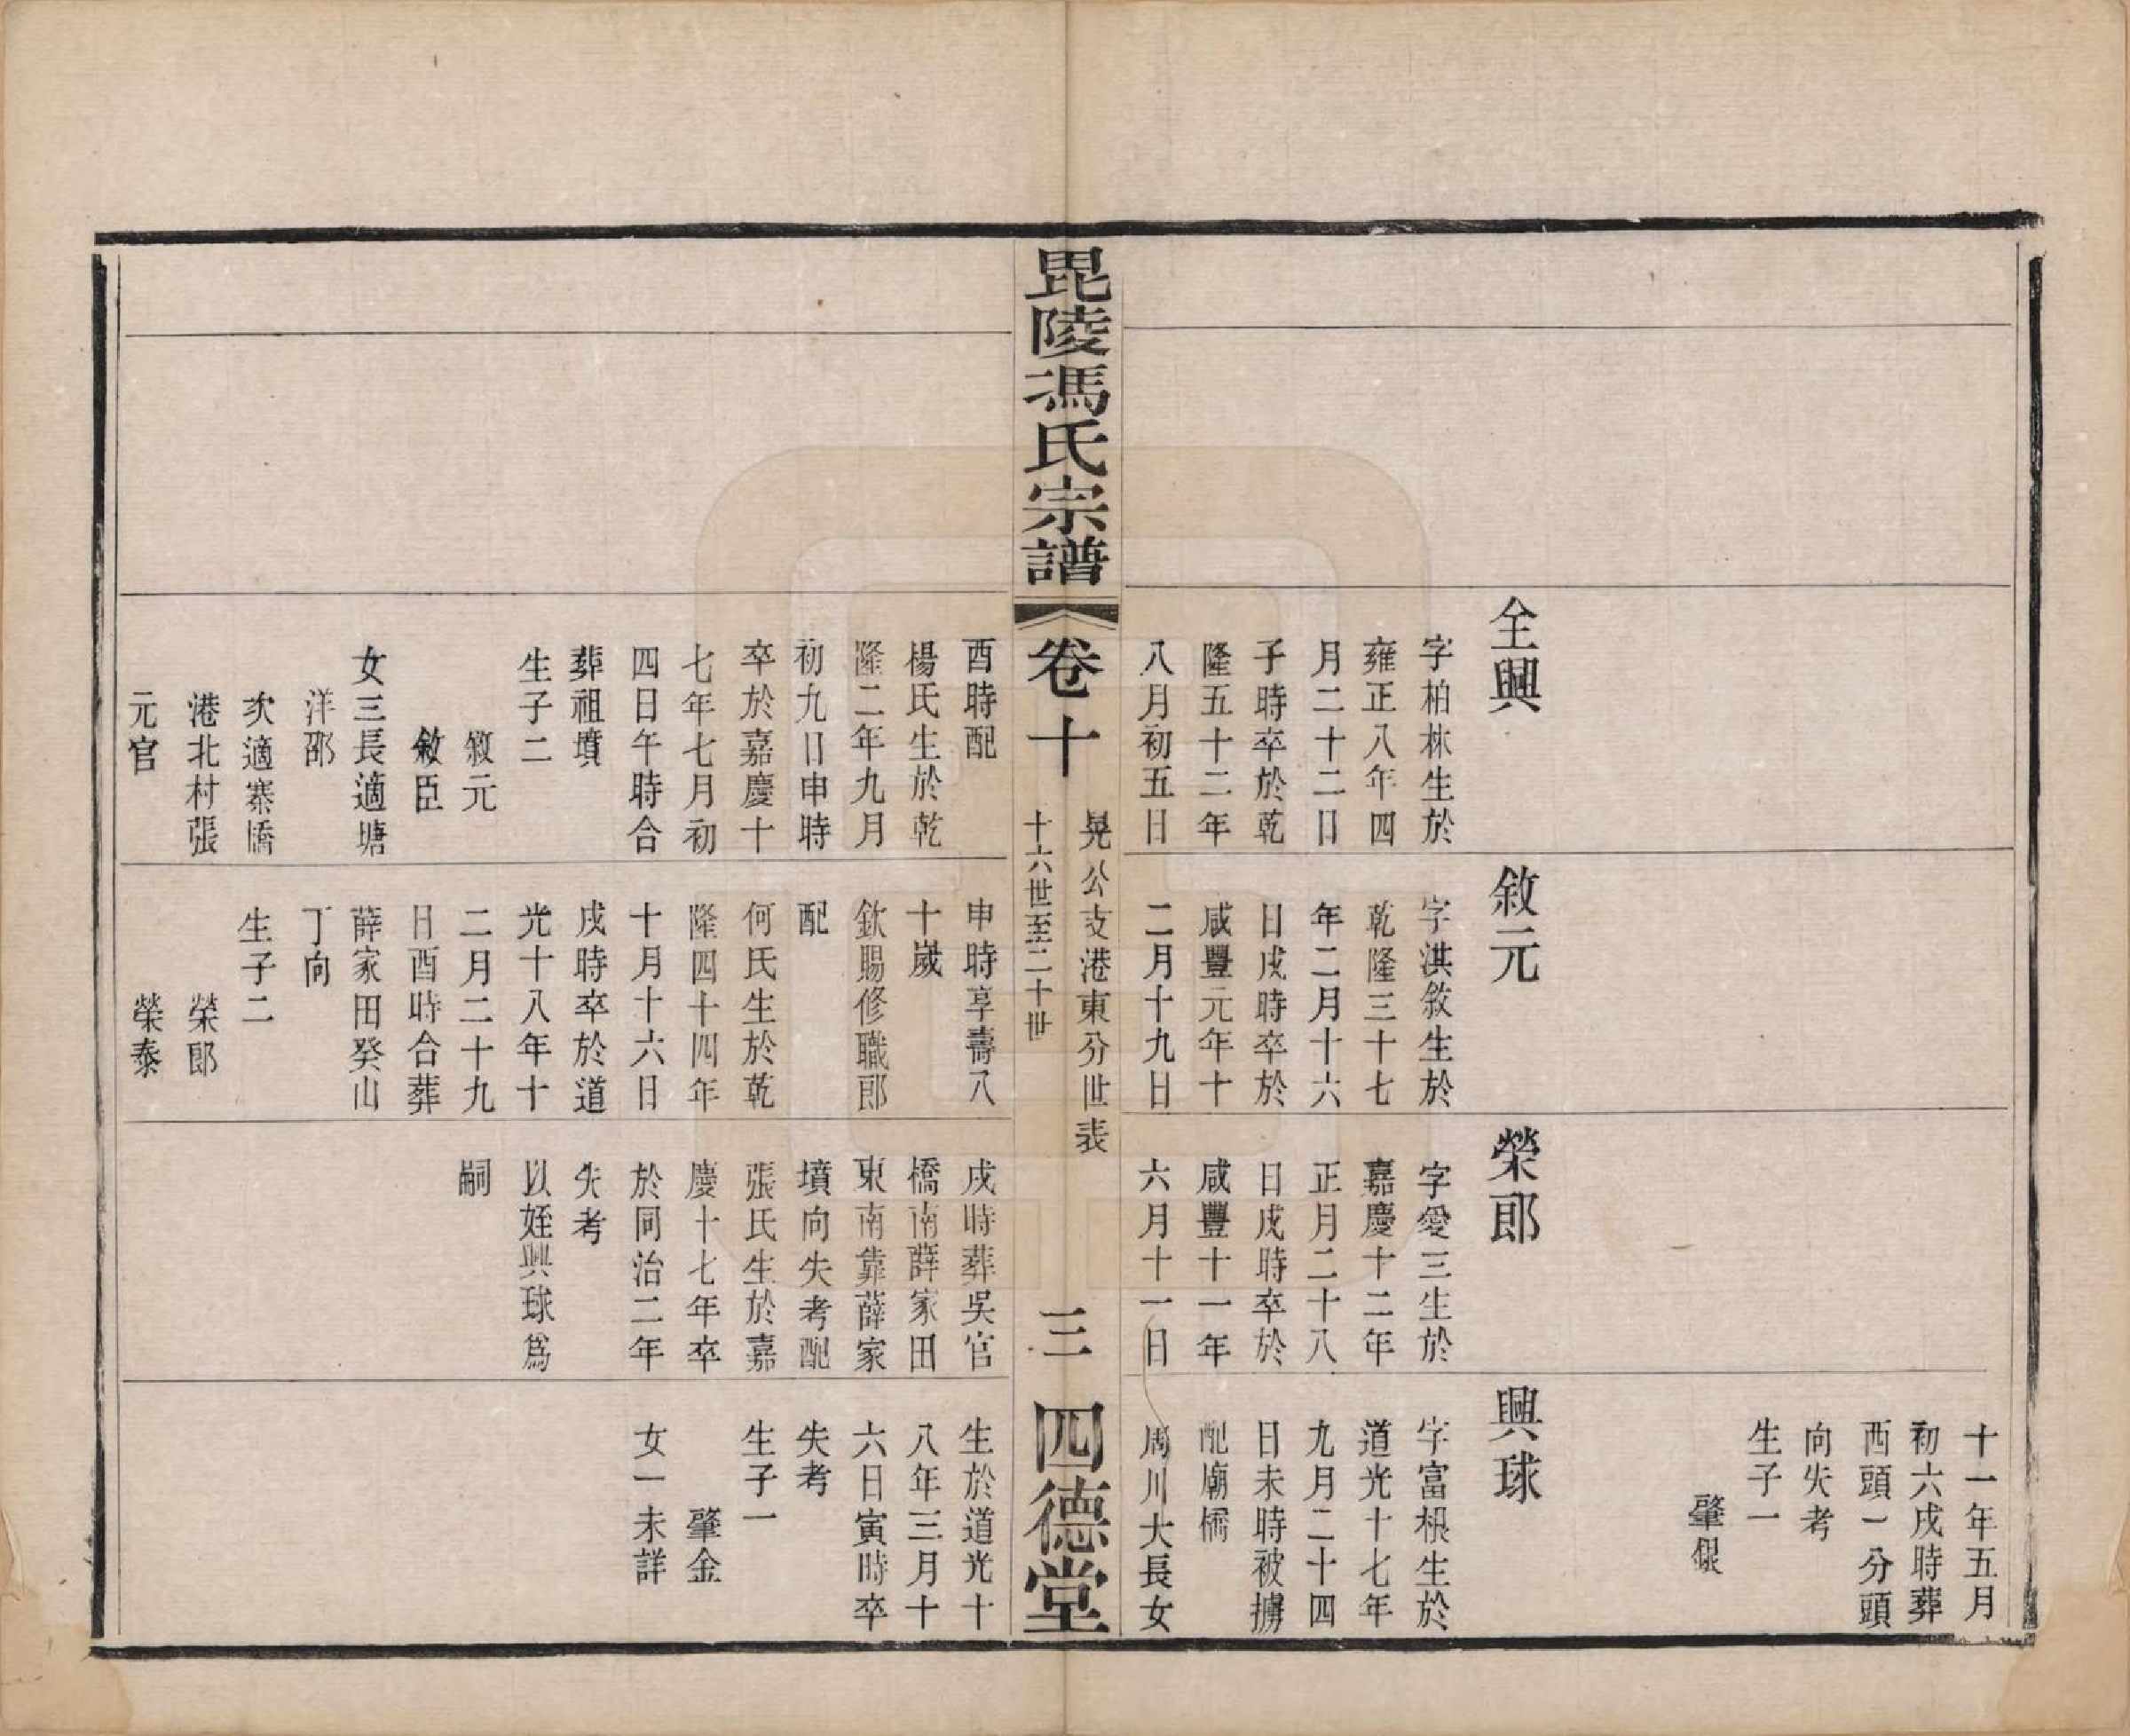 十一年五月
初六戌時葬
西頭一分頭
向失考
生子一
肇銀
全興
字柏林生於
雍正八年四
月二十二日
子時卒於乾
隆五十二年
八月初五日
敘元
字淇敘生於
乾隆三十七
年二月十六
日戌時卒於
咸豐元年十
二月十九日
榮郎
字愛三生於
嘉慶十二年
正月二十八
日戌時卒於
咸豐十一年
六月十一日
興球
字富根生於
道光十七年
九月二十四
日未時被擄
配廟橋
周川大長女
毘陵馮氏宗譜
卷十
晃公支港東分世表
十六世至二十世
三
四德堂
酉時配
楊氏生於乾
隆二年九月
初九日申時
卒於嘉慶十
七年七月初
四日午時合
葬祖墳
生子二
敘元
敘臣
女三長適塘
洋邵
次適寨橋
港北村張
元官
申時享壽八
十嵗
欽賜修職郎
配
何氏生於乾
隆四十四年
十月十六日
戌時卒於道
光十八年十
二月二十九
日酉時合葬
薛家田癸山
丁向
生子二
榮郎
榮泰
戌時葬吳官
橋南薛家田
東南靠薛家
墳向失考配
張氏生於嘉
慶十七年卒
於同治二年
失考
以姪興球爲
嗣
生於道光十
八年三月十
六日寅時卒
失考
生子一
肇金
女一未詳